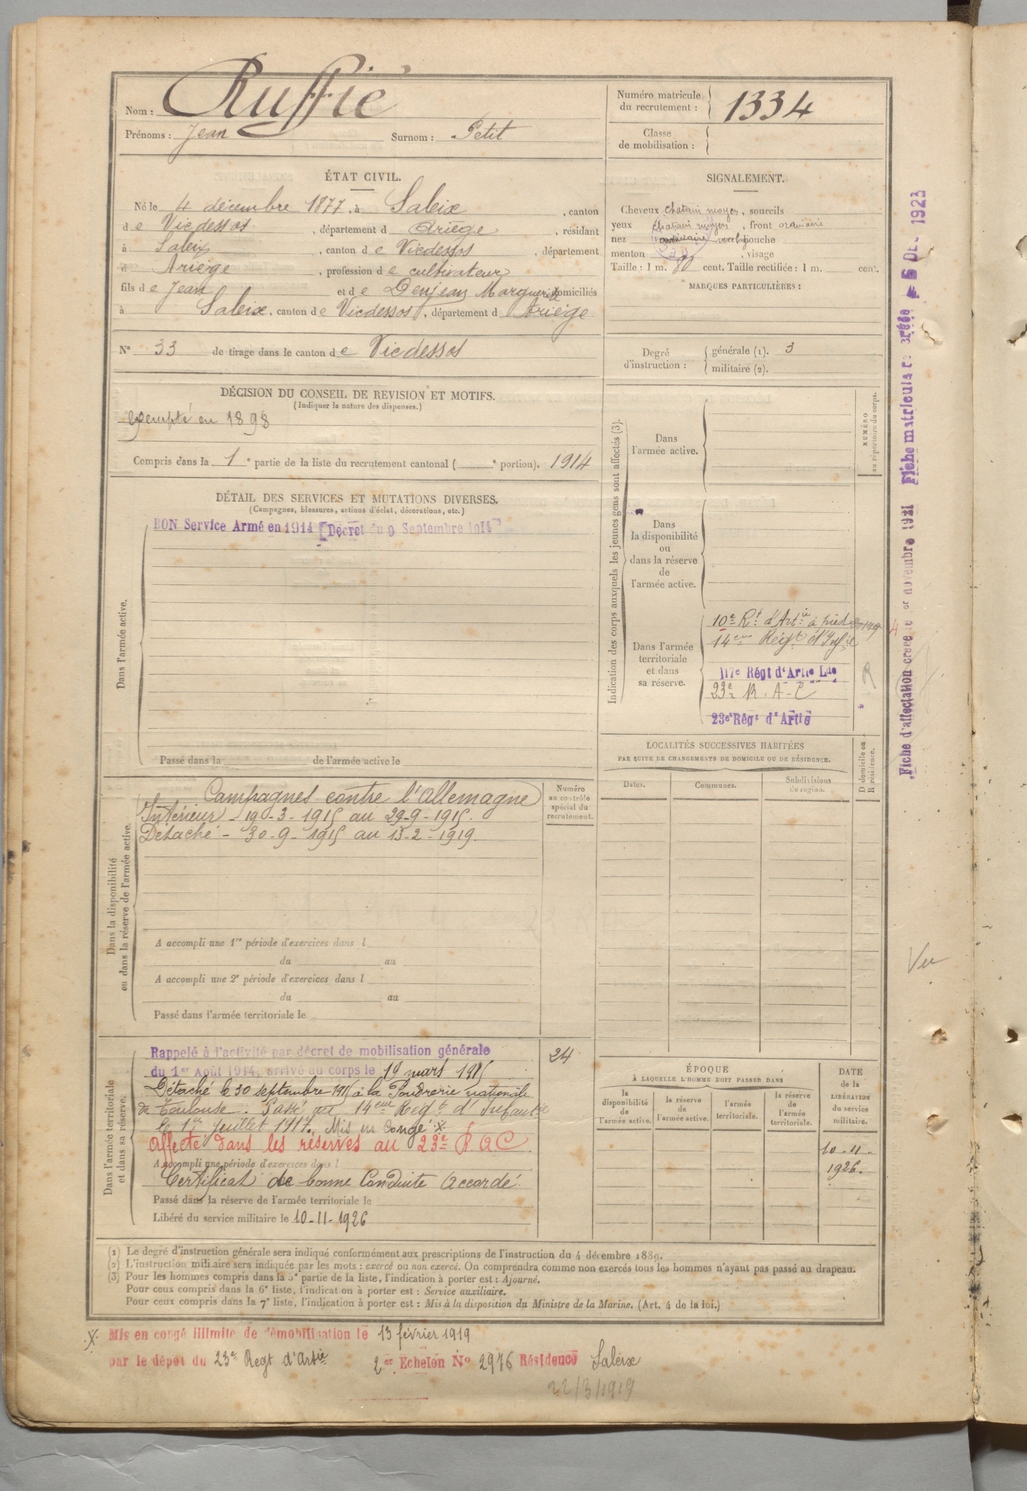 Nom : Ruffié
Prénoms : Jean Surnom : Petit
Numéro matricule du recrutement : 1334
Classe de mobilisation :
ÉTAT CIVIL.
Né le 4 décembre 1877, à Saleix, canton
de Vicdessos, département d Ariège, résidant
à Saleix, canton de Vicdessos, département
d Ariège, profession de cultivateur
fils de Jean et de Denjean Marguerite domiciliés
à Saleix, canton de Vicdessos, département d Ariège
N° 33 de tirage dans le canton de Vicdessos
SIGNALEMENT.
Cheveux chatain moyen, sourcils
yeux chatain moyen, front ordinaire
nez ordinaire bouche
menton , visage
Taille : 1 m. cent. Taille rectifiée : 1 m. cent.
MARQUES PARTICULIÈRES :
Degré d'instruction : générale (1). 3
militaire (2).
DÉCISION DU CONSEIL DE REVISION ET MOTIFS.
(Indiquer la nature des dispenses.)
Exempté en 1898
Compris dans la 1e partie de la liste du recrutement cantonal ( e portion). 1914
DÉTAIL DES SERVICES ET MUTATIONS DIVERSES.
(Campagnes, blessures, actions d'éclat, décorations, etc.)
BON Service Armé en 1914 [Décret du 9 Septembre 1914]
Dans l'armée active.
Passé dans la de l'armée active le
Indication des corps auxquels les jeunes gens sont affectés (3).
NUMÉRO au répertoire du corps.
Dans l'armée active.
Dans la disponibilité ou dans la réserve de l'armée active.
Dans l'armée territoriale et dans sa réserve.
10e Rt d'Artie à pied
14eme Régt d'Infie
117e Régt d'Artie Lde
23e R. A. C
23e Régt d'Artie
R
LOCALITÉS SUCCESSIVES HABITÉES
PAR SUITE DE CHANGEMENTS DE DOMICILE OU DE RÉSIDENCE.
Dates.
Communes.
Subdivisions de région.
D domicile ou R résidence.
Dans la disponibilité ou dans la réserve de l'armée active.
Numéro au contrôle spécial du recrutement.
Campagnes contre l'Allemagne
Intérieur - 19-3-1915 au 29-9-1915.
Détaché - 30-9-1915 au 13-2-1919.
A accompli une 1re période d'exercices dans l
du au
A accompli une 2e période d'exercices dans l
du au
Passé dans l'armée territoriale le
Dans l'armée territoriale et dans sa réserve.
Rappelé à l'activité par décret de mobilisation générale
du 1er Août 1914, arrivé au corps le 19 mars 1915
24
Détaché le 30 septembre 1915 à la Poudrerie nationale
de Toulouse. Passé au 14eme Régt d'Infanterie
le 1er juillet 1917. Mis en congé X
Affecté dans les réserves au 23e R A C
A accompli une période d'exercices dans l
Certificat de bonne Conduite Accordé
Passé dans la réserve de l'armée territoriale le
Libéré du service militaire le 10-11-1926
ÉPOQUE
À LAQUELLE L'HOMME DOIT PASSER DANS
la disponibilité de l'armée active.
la réserve de l'armée active.
l'armée territoriale.
la réserve de l'armée territoriale.
DATE de la LIBÉRATION du service militaire.
10-11-
1926.
(1) Le degré d'instruction générale sera indiqué conformément aux prescriptions de l'instruction du 4 décembre 1889.
(2) L'instruction militaire sera indiquée par les mots : exercé ou non exercé. On comprendra comme non exercés tous les hommes n'ayant pas passé au drapeau.
(3) Pour les hommes compris dans la 5e partie de la liste, l'indication à porter est : Ajourné.
Pour ceux compris dans la 6e liste, l'indication à porter est : Service auxiliaire.
Pour ceux compris dans la 7e liste, l'indication à porter est : Mis à la disposition du Ministre de la Marine. (Art. 4 de la loi.)
X Mis en congé illimité de démobilisation le 13 février 1919
par le dépôt du 23e Regt d'Artie 2er Echelon N° 2976 Résidence Saleix
22/3/1919
Fiche d'affectation créée le novembre 1921 Fiche matricule créée le 5 DEC 1923
Vu